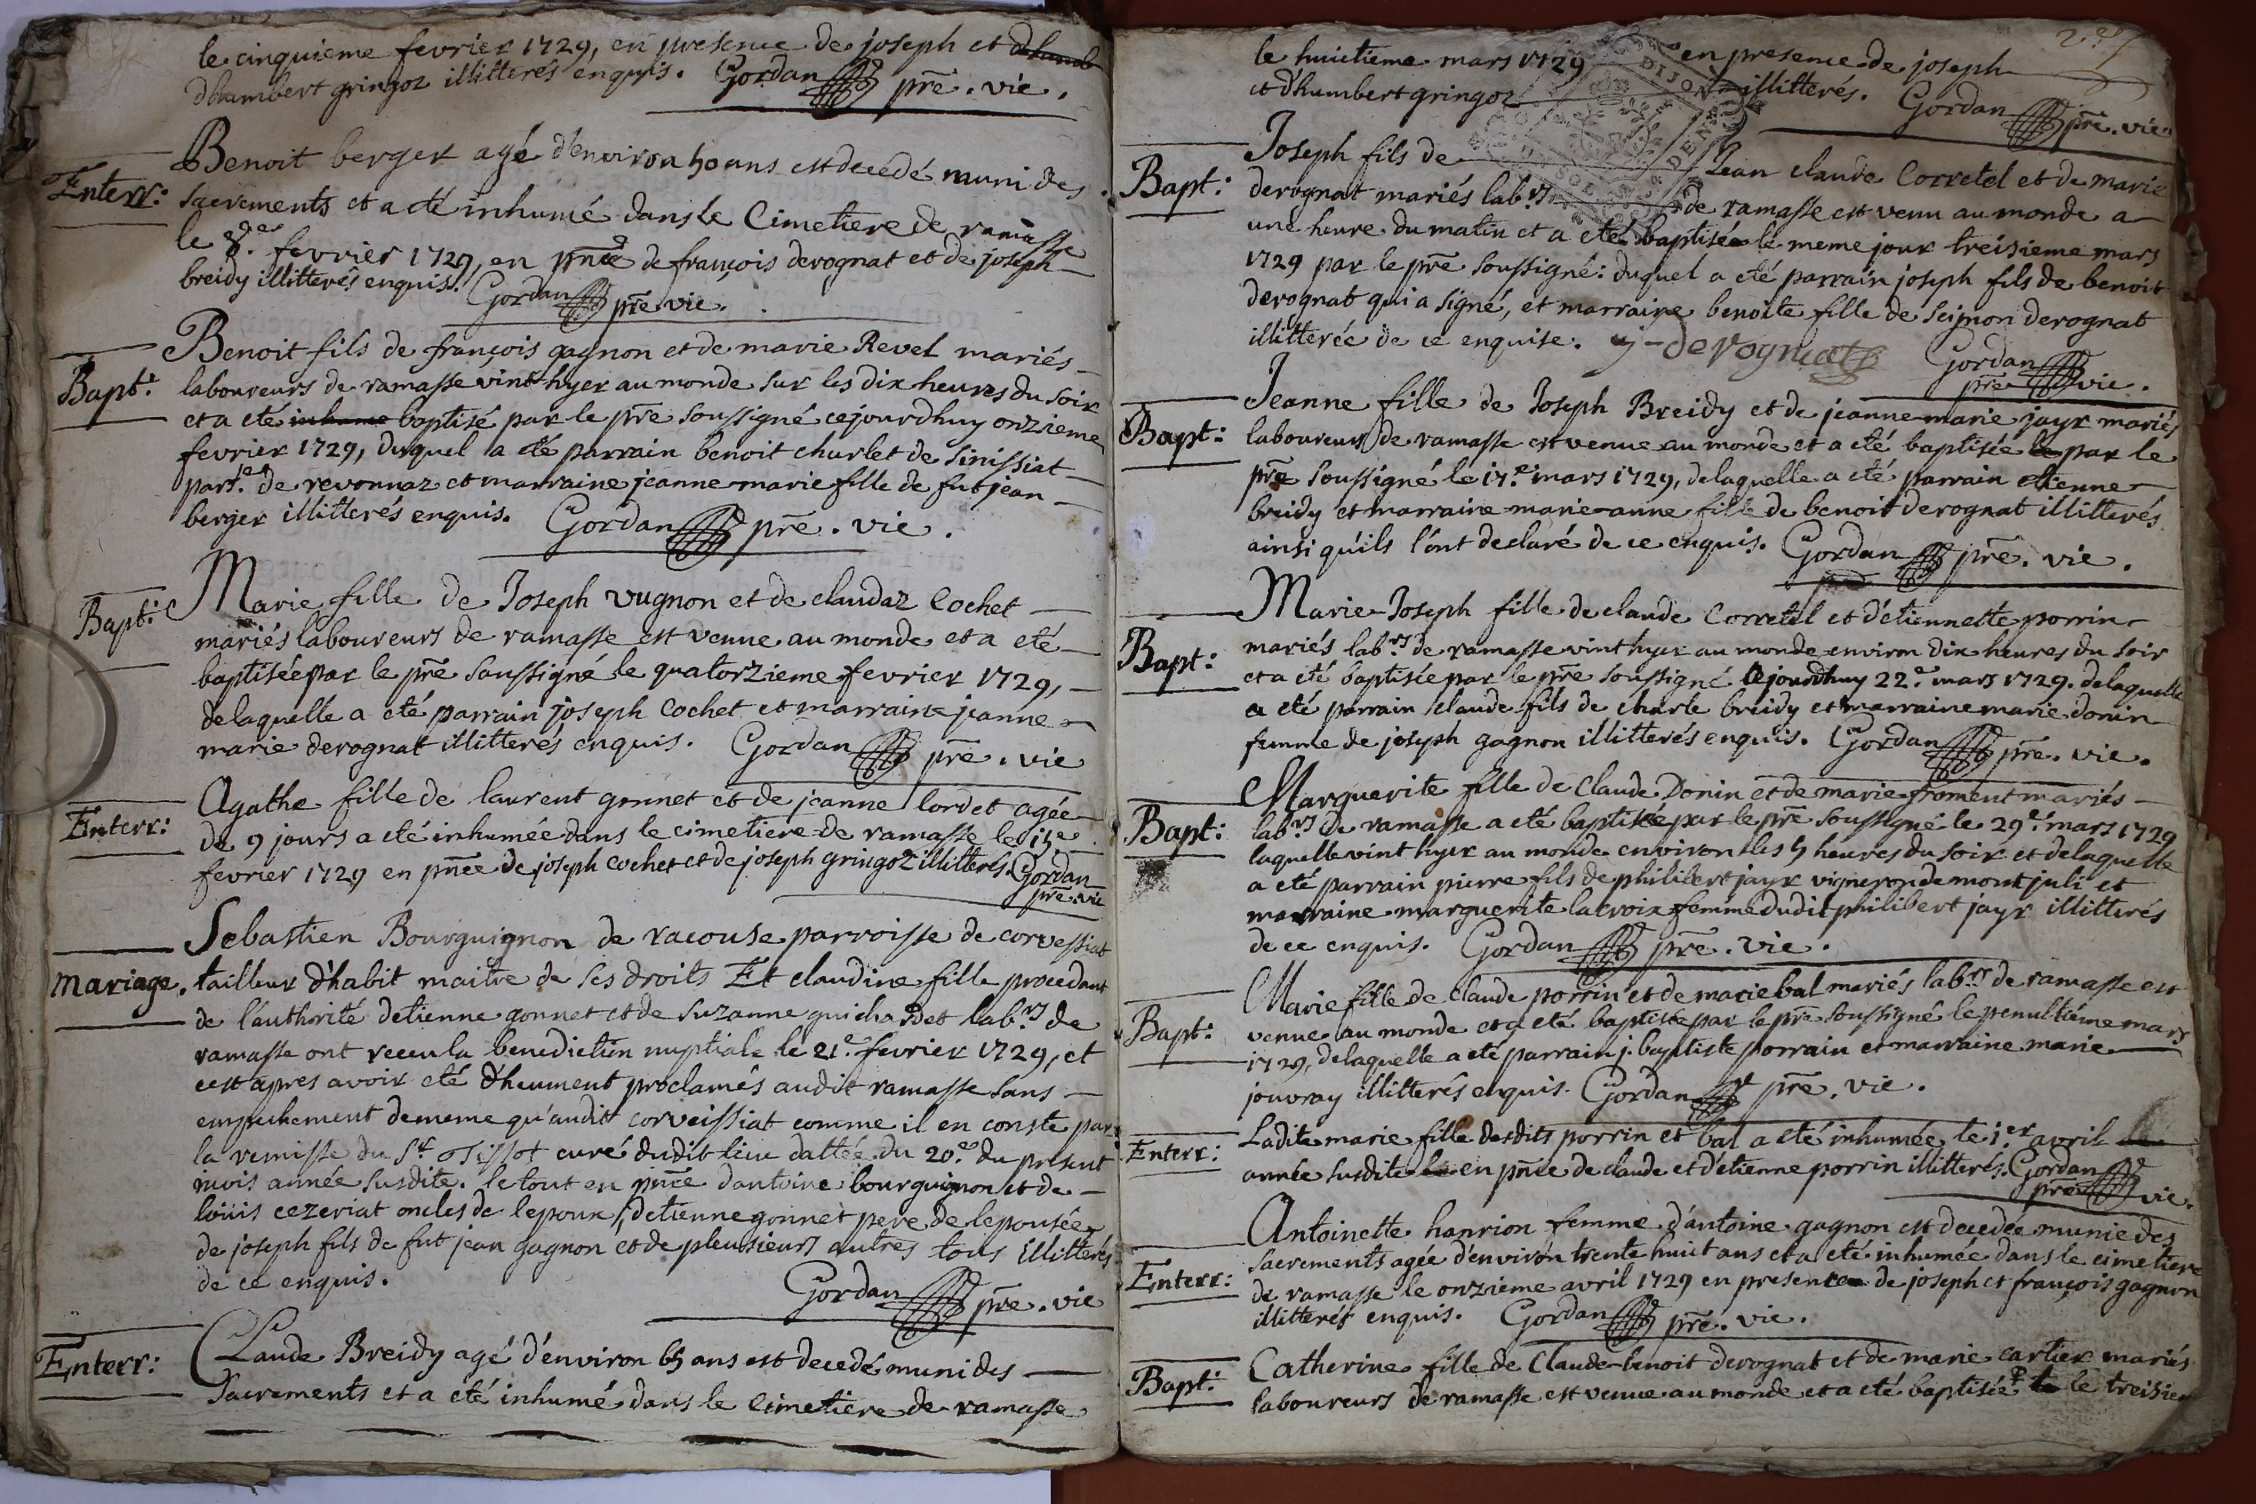 le cinquieme fevrier 1729, en presence de joseph et
dhumbert gringoz illitterés enquis. Gordan pre. vic.
Enterr:
Benoit berger agé d'environ 50 ans est decedé muni des
sacrements et a eté inhumé dans le Cimetiere de ramasse
le 8e. fevrier 1729, en pnce de françois derognat et de joseph
breidy illitterés enquis. Gordan pre vic.
Bapt:
Benoit fils de françois gagnon et de marie Revel mariés
laboureurs de ramasse vint hyer au monde sur les dix heures du soir
et a eté baptisé par le pre soussigné cejourdhuy onzieme
fevrier 1729, duquel a eté parrain benoit churlet de sinissiat
parse. de revonnaz et marraine jeanne marie fille de fut jean
berger illitterés enquis. Gordan pre. vic.
Bapt:
Marie fille de Joseph vugnon et de claudaz Cochet
mariés laboureurs de ramasse est venue au monde et a eté
baptisée par le pre soussigné le quatorzieme fevrier 1729,
delaquelle a eté parrain joseph Cochet et marraine jeanne
marie derognat illitterés enquis. Gordan pre. vic
Enterr:
Agathe fille de laurent gonnet et de jeanne lordet agée
de 9 jours a eté inhumée dans le cimetiere de ramasse le 15e
fevrier 1729 en pnce de joseph cochet et de joseph gringoz illitterés. Gordan
pre. vic
Mariage.
Sebastien Bourguignon de racouse parroisse de corvessiat
tailleur d'habit maitre de ses droits Et claudine fille procedant
de l'authorité detienne gonnet et de suzanne guichardet labrs de
ramasse ont receu la benediction nuptiale le 21e. fevrier 1729, et
cest apres avoir eté dheument proclamés audit ramasse sans
empechement de meme qu'audit corveissiat comme il en conste par
la remisse du Sr Tissot curé dudit lieu dattée du 20e. du present
mois année susdite. le tout en pnce dantoine bourguignon et de
loüis cezeriat oncles de lepoux, detienne gonnet pere de lepousée
de joseph fils de fut jean gagnon et de plusieurs autres tous illitterés
de ce enquis.
Gordan pre. vic
Enterr:
Claude Breidy agé d'environ 65 ans est decedé muni des
sacrements et a eté inhumé dans le Cimetiere de ramasse
le huictieme mars 1729 en presence de joseph
et d'humbert gringoz illitterés. Gordan
pre. vic
Bapt:
Joseph fils de Jean claude Corretel et de marie
derognat mariés labrs de ramasse est venu au monde a
une heure du matin et a eté baptisé le meme jour treisieme mars
1729 par le pre soussigné: duquel a eté parrain joseph fils de benoit
derognat qui a signé, et marraine benoite fille de seimon derognat
illitterée de ce enquise. j-derognat Gordan
pre vic.
Bapt:
Jeanne fille de Joseph Breidy et de jeanne marie jayr mariés
laboureurs de ramasse est venue au monde et a eté baptisée par le
pre soussigné le 17e. mars 1729, delaquelle a eté parrain etienne
breidy et marraine marie anne fille de benoit derognat illitterés
ainsi qu'ils l'ont declaré de ce enquis. Gordan pre. vic.
Bapt:
Marie Joseph fille de claude Corretel et d'etiennette porrin
mariés labrs de ramasse vint hyer au monde environ dix heures du soir
et a eté baptisée par le pre soussigné cejourdhuy 22e. mars 1729. delaquelle
a eté parrain claude fils de charle breidy et marraine marie donin
femme de joseph gagnon illitterés enquis. Gordan pre. vic.
Bapt:
Marguerite fille de Claude Donin et de marie froment mariés
labrs de ramasse a eté baptisée par le pre soussigné le 29e. mars 1729
laquelle vint hyer au monde environ les 5 heures du soir et delaquelle
a eté parrain pierre fils de philibert jayr vigneron de mont juli et
marraine marguerite lacroix femme dudit philibert jayr illitterés
de ce enquis. Gordan pre. vic.
Bapt:
Marie fille de Claude porrin et de marie bal mariés labrs de ramasse est
venue au monde et a eté baptisée par le pre soussigné le penultieme mars
1729, delaquelle a eté parrain j. baptiste porrain et marraine marie
jouvray illitterés enquis. Gordan pre. vic.
Enterr:
Ladite marie fille desdits porrin et bal a eté inhumée le 1er avril
année susdite en pnce de claude et d'etienne porrin illitterés. Gordan
pre vic.
Enterr:
Antoinette hanrion femme d'antoine gagnon est decedée munie des
sacrements agée d'environ trente huit ans et a eté inhumée dans le cimetiere
de ramasse le onzieme avril 1729 en presence de joseph et françois gagnon
illitterés enquis. Gordan pre. vic.
Bapt:
Catherine fille de Claude benoit derognat et de marie cartier mariés
laboureurs de ramasse est venue au monde et a eté baptisée le treisie